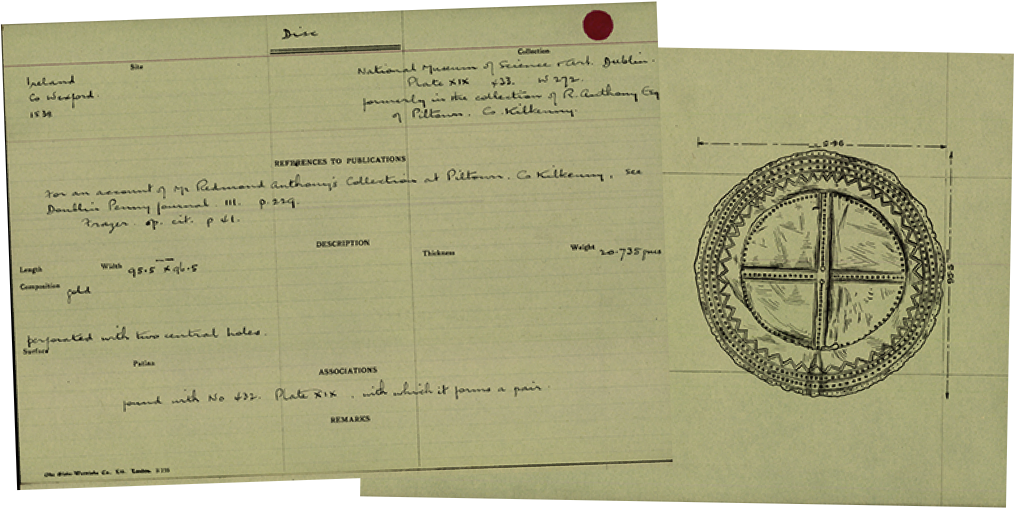 Disc
Site
Collection
Ireland
Co Wexford.
1539
National Museum of Science & Art. Dublin.
Plate XIX 433. W 272.
formerly in the collection of R. Anthony Esq
of Piltown. Co. Kilkenny.
REFERENCES TO PUBLICATIONS
For an account of Mr Redmond Anthony's Collection at Piltown. Co Kilkenny, see
Doublin Penny Journal. III. p. 229.
Frazer. op. cit. p 41.
DESCRIPTION
Length
Width 95.5 × 96.5
Thickness
Weight 20.735
Composition gold
perforated with two central holes.
Surface
Patina
ASSOCIATIONS
found with No 432. Plate XIX, with which it forms a pair.
REMARKS
Co. Ltd. London.